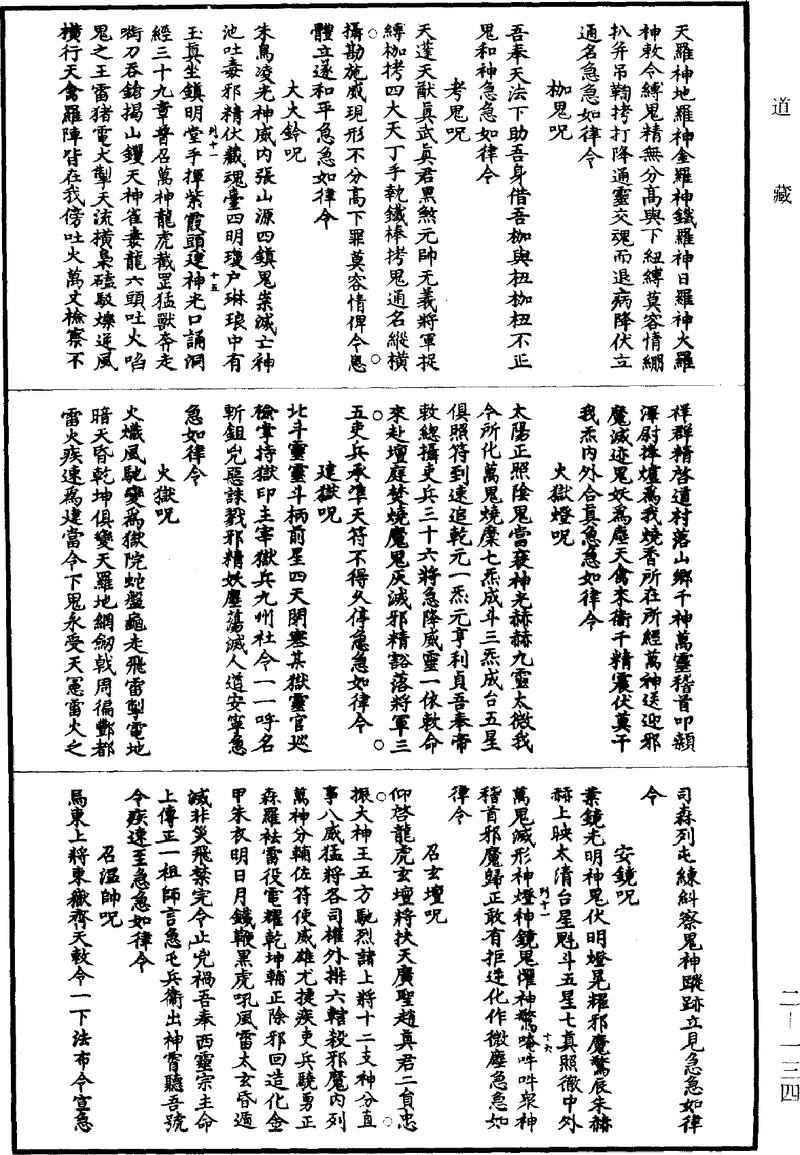 道藏
天羅神地羅神金羅神鐵羅神日羅神火羅
神敕令縛鬼精無分高與下紐縛莫容情綳
扒并吊鞫拷打降通靈交魂而退病降伏立
通名急急如律令
枷鬼呪
吾奉天法下助吾身借吾枷與杻枷杻不正
鬼和神急急如律令
考鬼呪
天蓬天猷真武真君黑煞元帥无義將軍捉
縛枷拷四大天丁手執鐵棒拷鬼通名縱橫
攝勘施威現形不分高下罪莫容情俾令患
體立遂和平急急如律令
大火鈴呪
朱鳥凌光神威內張山源四鎮鬼祟滅亡神
池吐毒邪精伏藏瑰臺四明瓊戶琳琅中有
列十一
玉真坐鎮明堂手揮紫霞頭建神光口誦洞
十五
經三十九章普召萬神龍虎截罡猛獸奔走
啣刀吞鎗揭山钁天神雀毒龍六頭吐火啗
鬼之王雷猪電犬掣天流橫梟磕駁爍逆風
橫行天禽羅陣皆在我傍吐火萬丈檢察不
祥群精啓道村落山鄉千神萬靈稽首叩顙
澤尉捧爐為我燒香所在所經萬神送迎邪
魔滅迹鬼妖為塵天禽來衛千精震伏莫干
我炁內外合真急急如律令
火獄燈呪
太陽正照陰鬼當衰神光赫赫九靈太微我
令所化萬鬼燒縻七炁成斗三炁成台五星
俱照符到速追乾元一炁元亨利貞吾奉帝
敕總攝吏兵三十六將急降威靈一依敕命
來赴壇庭焚燒魔鬼灰滅邪精豁落將軍三
五吏兵承準天符不得久停急急如律令
建獄呪
北斗靈靈斗柄前星四天閉塞某獄靈官廵
檢掌持獄印主宰獄兵九州社令一一呼名
斬鉏兇惡誅戮邪精妖塵蕩滅人道安寧急
急如律令
火獄呪
火熾風馳變為獄院蛇盤龜走飛雷掣電地
暗天昏乾坤俱變天羅地網劍戟周徧酆都
雷火疾速為建當令下鬼永受天憲雷火之
司森列屯練糾察鬼神蹤跡立見急急如律
令
安鏡呪
業鏡光明神鬼伏明燈晃耀邪魔驚辰朱赫
赫上映太清台星魁斗五星七真照徹中外
列十一
萬鬼滅形神燈神鏡鬼懼神驚唵吽吽眾神
十六
稽首邪魔歸正敢有拒逆化作微塵急急如
律令
召玄壇呪
仰啓龍虎玄壇將扶天廣聖趙真君二負忠
振大神王五方馳烈諸上將十二支神分直
事八威猛將各司權外排六轄殺邪魔內列
萬神分輔佐符使威雄尤捷疾吏兵驍勇正
森羅袪雷役電耀乾坤輔正除邪回造化金
甲朱衣明日月鐵鞭黑虎吼風雷太玄昏遁
滅非災飛禁完令止兇禍吾奉西靈宗主命
上傳正一祖師言急屯兵衛出神霄聽吾號
令疾速至急急如律令
召溫帥呪
為東上將東嶽齊天敕令一下法布令宣急
二—一三四